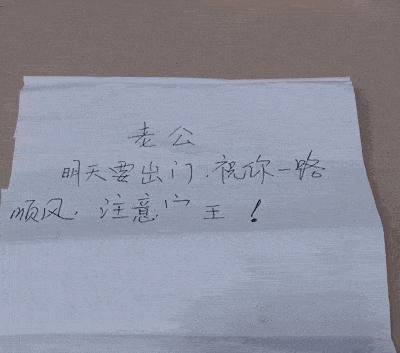 老公
明天要出门.祝你一路
顺风.注意宀王!